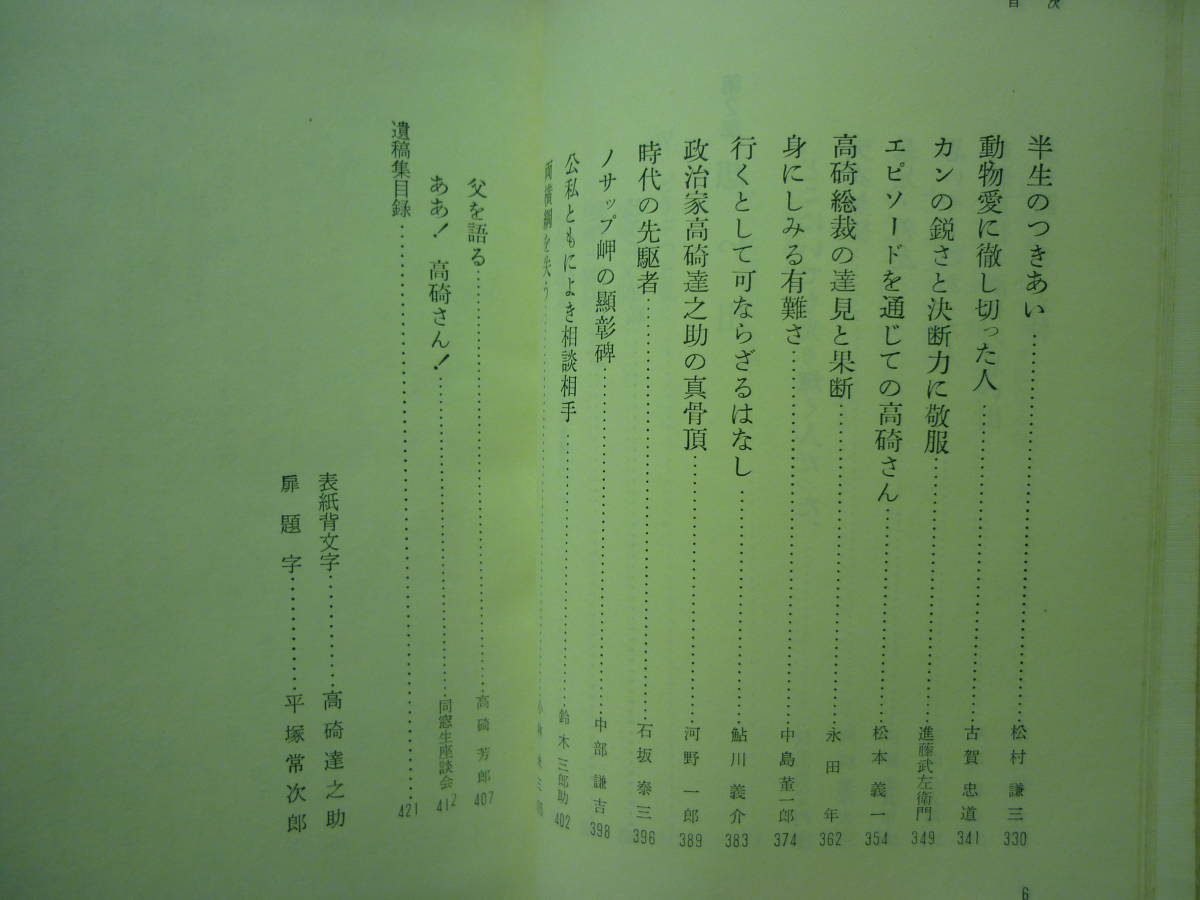 目次
半生のつきあい……………松村謙三 330
動物愛に徹し切った人……………古賀忠道 341
カンの鋭さと決断力に敬服……………進藤武左衛門 349
エピソードを通じての高碕さん……………松本義一 354
高碕総裁の達見と果断……………永田年 362
身にしみる有難さ……………中島董一郎 374
行くとして可ならざるはなし……………鮎川義介 383
政治家高碕達之助の真骨頂……………河野一郎 389
時代の先駆者……………石坂泰三 396
ノサップ岬の顕彰碑……………中部謙吉 398
公私ともによき相談相手……………鈴木三郎助 402
両横綱を失う……………
父を語る……………高碕芳郎 407
ああ!高碕さん!……………同窓生座談会 412
遺稿集目録……………421
表紙背文字……………高碕達之助
扉題字……………平塚常次郎
6